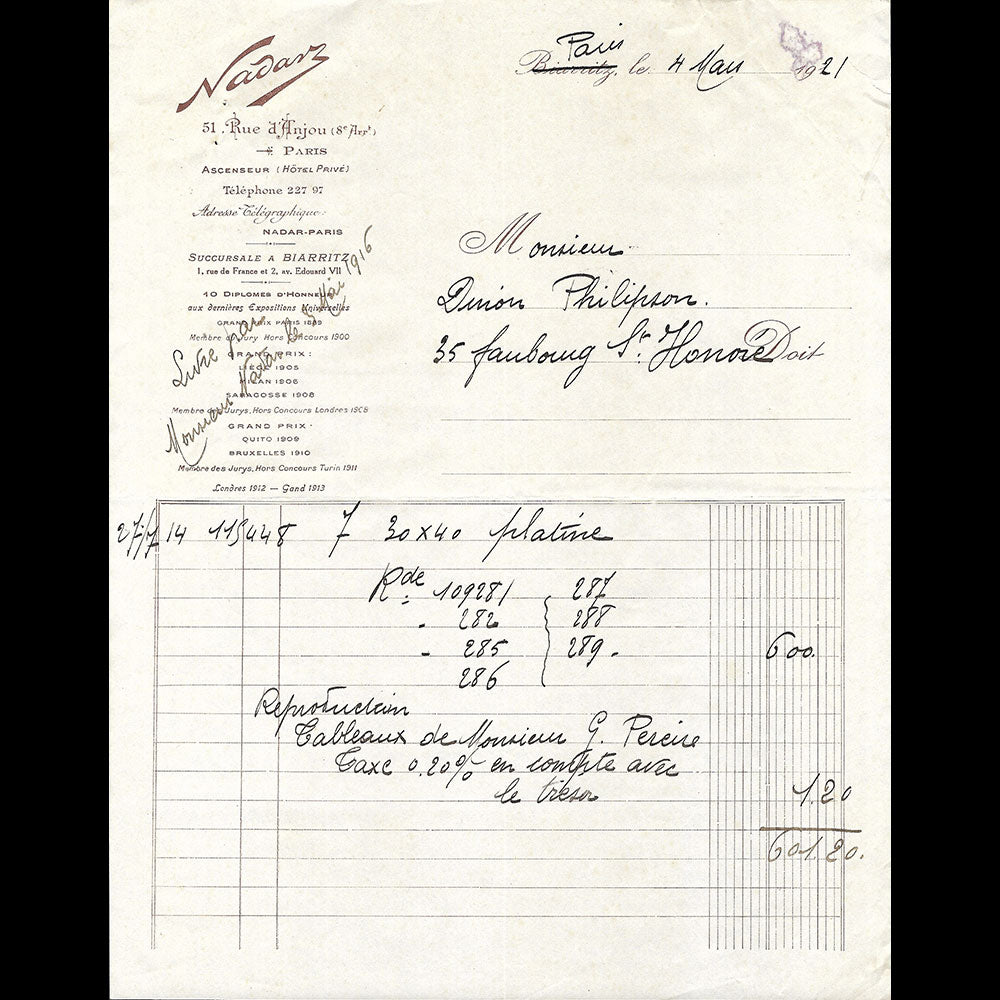 Nadar
51. Rue d'Anjou (8e Arrt)
PARIS
ASCENSEUR (HÔTEL PRIVÉ)
Téléphone 227 97
Adresse Télégraphique:
NADAR-PARIS
SUCCURSALE A BIARRITZ
1, rue de France et 2, av. Edouard VII
10 DIPLOMES D'HONNEUR
aux dernières Expositions Universelles
GRAND PRIX PARIS 1889
Membre du Jury Hors Concours 1900
GRAND PRIX :
LIEGE 1905
MILAN 1906
SARAGOSSE 1908
Membre des Jurys, Hors Concours Londres 1908
GRAND PRIX ·
QUITO 1909
BRUXELLES 1910
Membre des Jurys, Hors Concours Turin 1911
Londres 1912 — Gand 1913
Livré par
Monsieur Nadar le 5 Mai 1916
Paris
Biarritz, le 4 Mars 1921
Monsieur
Philipson.
35 faubourg St Honoré Doit
27/7 14 115448 7 30x40 platine
Rde 109281 287
- 282 288
- 285 289 - 600.
286
Reproduction
Tableaux de Monsieur G. Pereire
Taxe 0.20% en compte avec
le trésor 1.20
601.20.